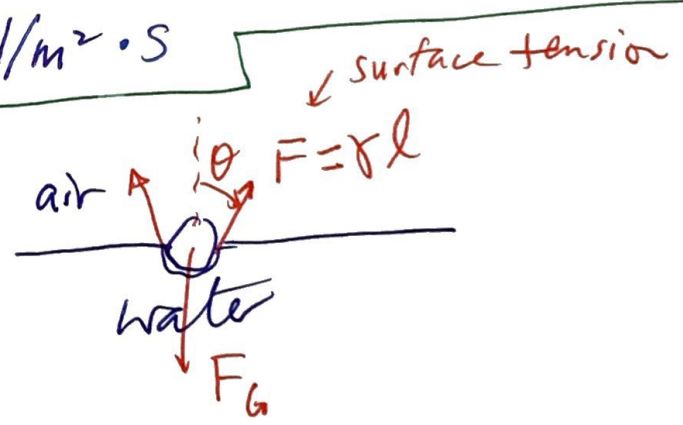 /m² · S
surface tension
θ F = γl
air
water
F_G